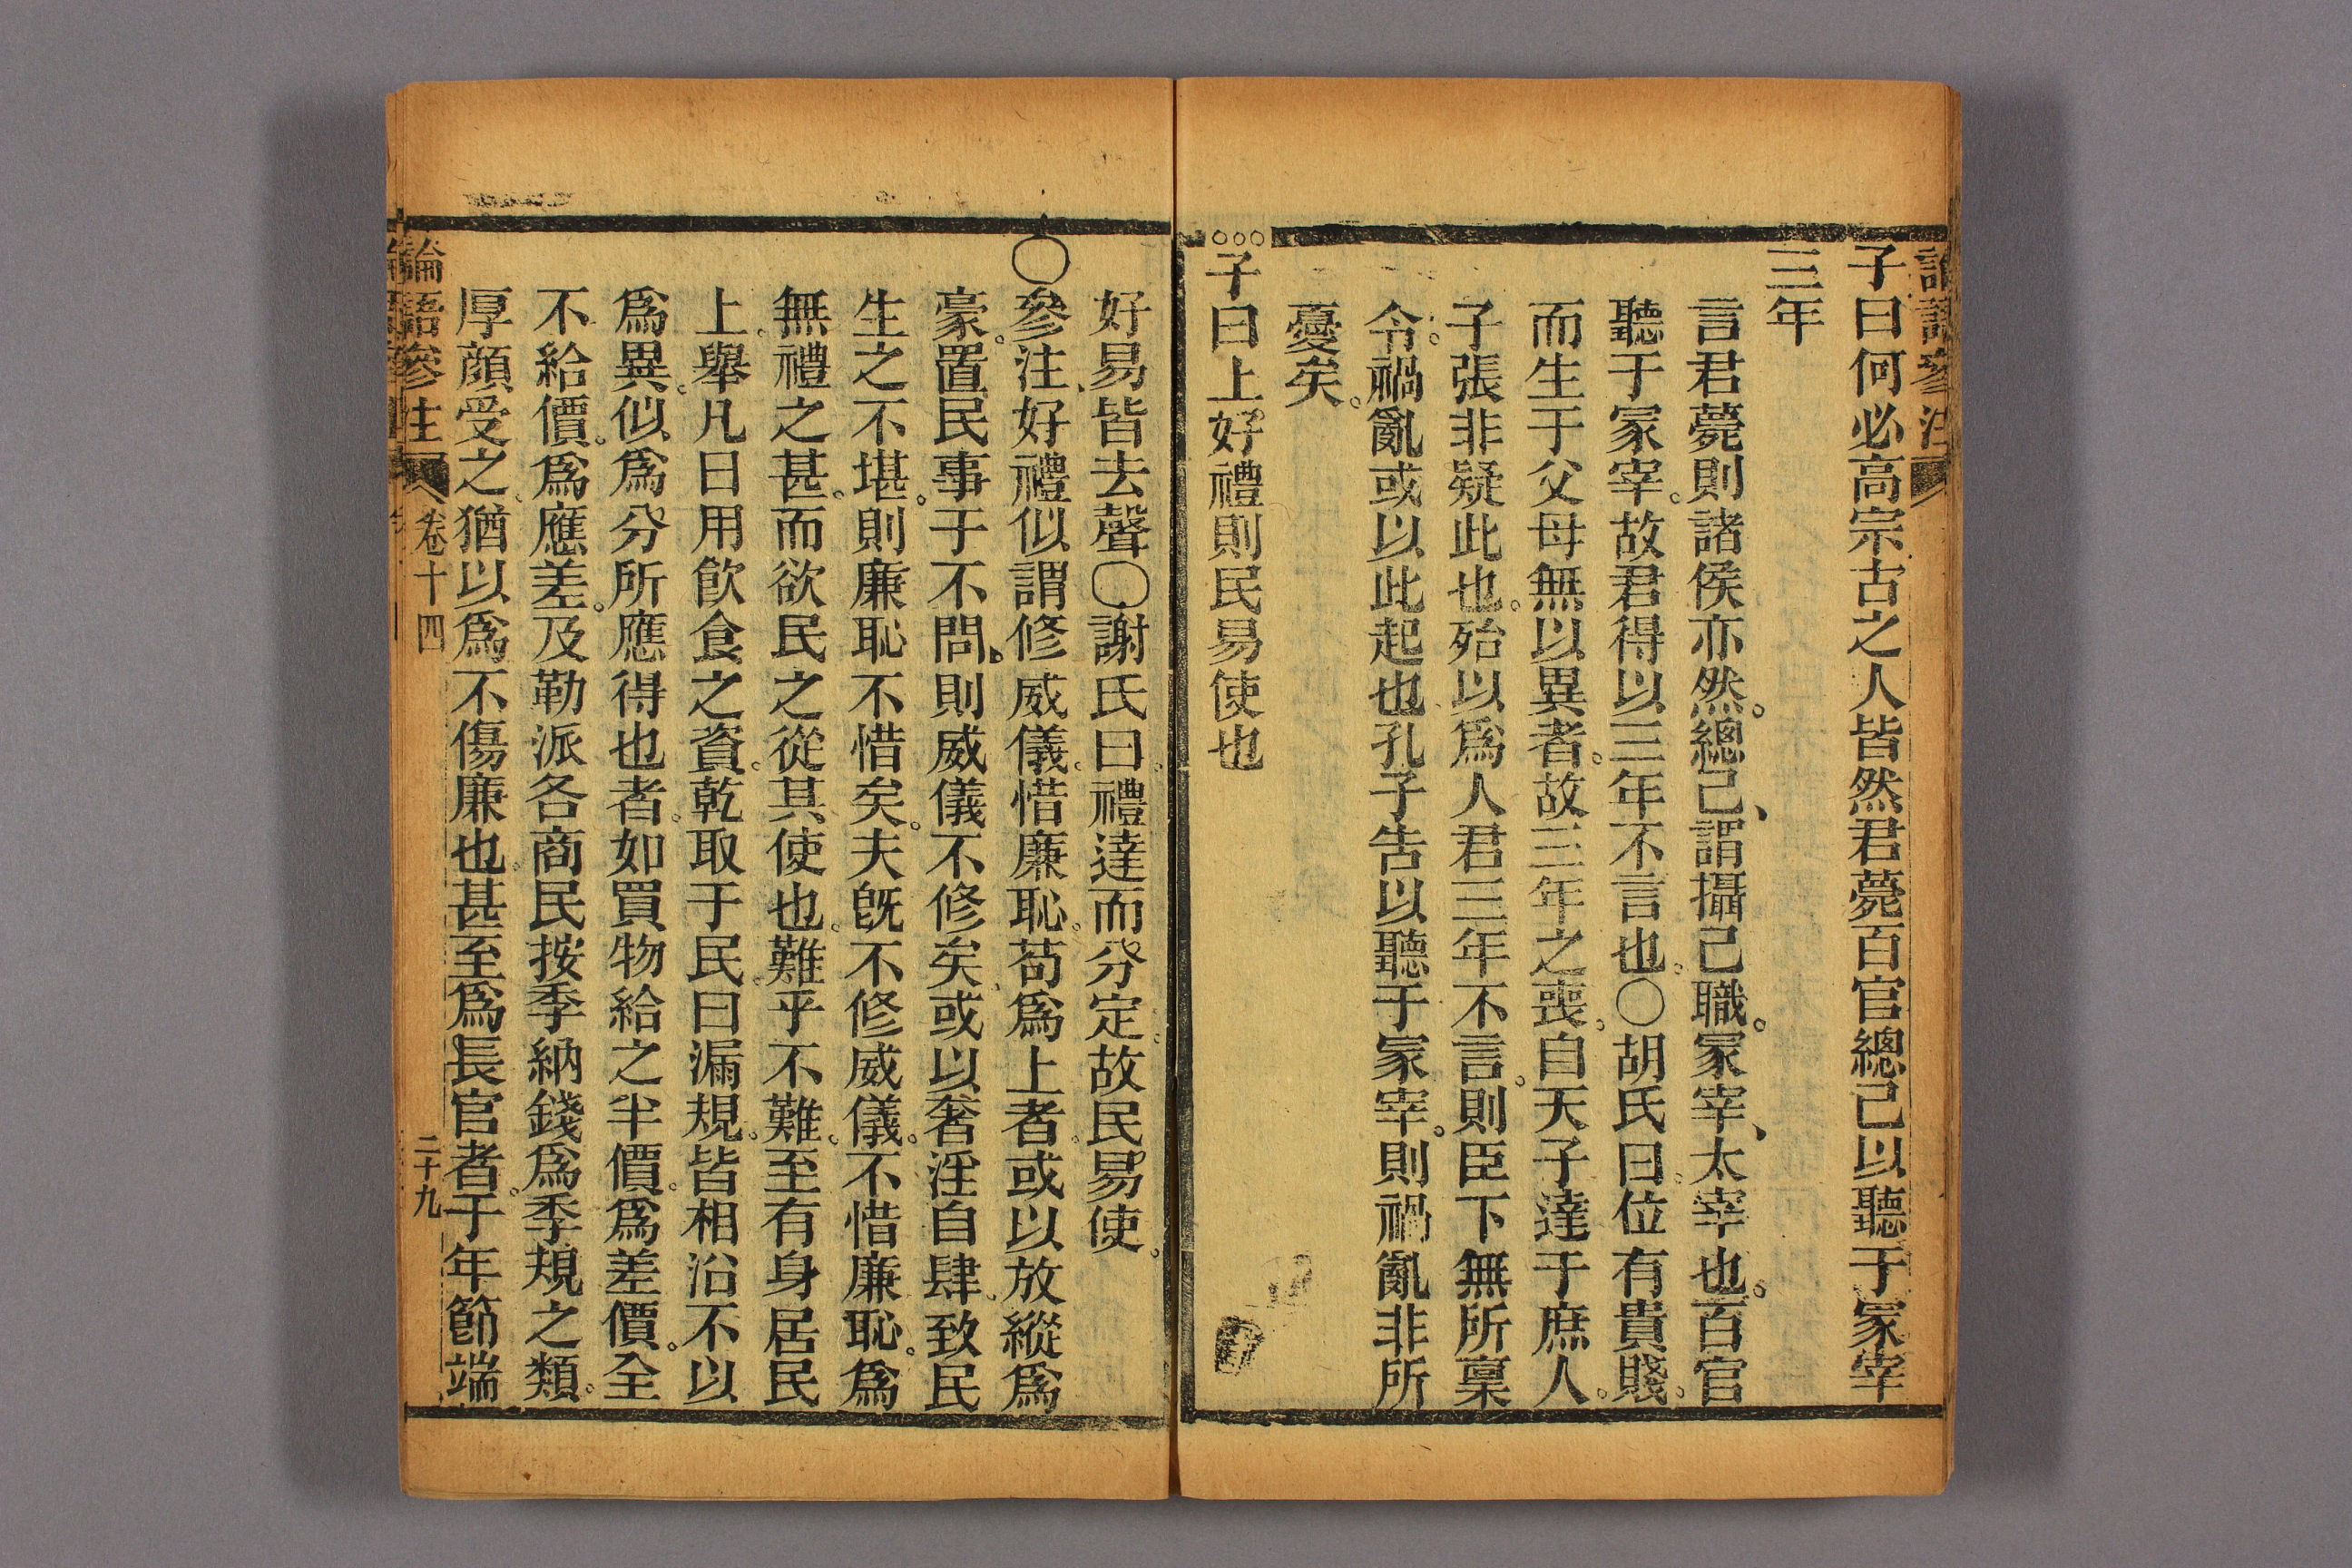 論語參注
子曰何必高宗古之人皆然君薨百官總己以聽于冢宰
三年
言君薨則諸侯亦然。總己、謂攝己職。冢宰、太宰也。百官
聽于冢宰。故君得以三年不言也。〇胡氏曰。位有貴賤。
而生于父母無以異者。故三年之喪。自天子達于庶人。
子張非疑此也。殆以爲人君三年不言。則臣下無所稟
令。禍亂或以此起也。孔子告以聽于冢宰。則禍亂非所
憂矣。
○○○子曰上好禮則民易使也
好易皆去聲〇謝氏曰。禮達而分定。故民易使。
〇參注、好禮似謂修威儀。惜廉恥。苟爲上者。或以放縱爲
豪。置民事于不問。則威儀不修矣。或以奢淫自肆。致民
生之不堪。則廉恥不惜矣。夫旣不修威儀。不惜廉恥。爲
無禮之甚。而欲民之從其使也。難乎不難。至有身居民
上。舉凡日用飮食之資。乾取于民。曰漏規。皆相沿不以
爲異。似爲分所應得也者。如買物給之半價。爲差價。全
不給價。爲應差。及勒派各商民按季納錢爲季規之類。
厚顔受之。猶以爲不傷廉也。甚至爲長官者。于年節端
論語參注
卷十四
二十九